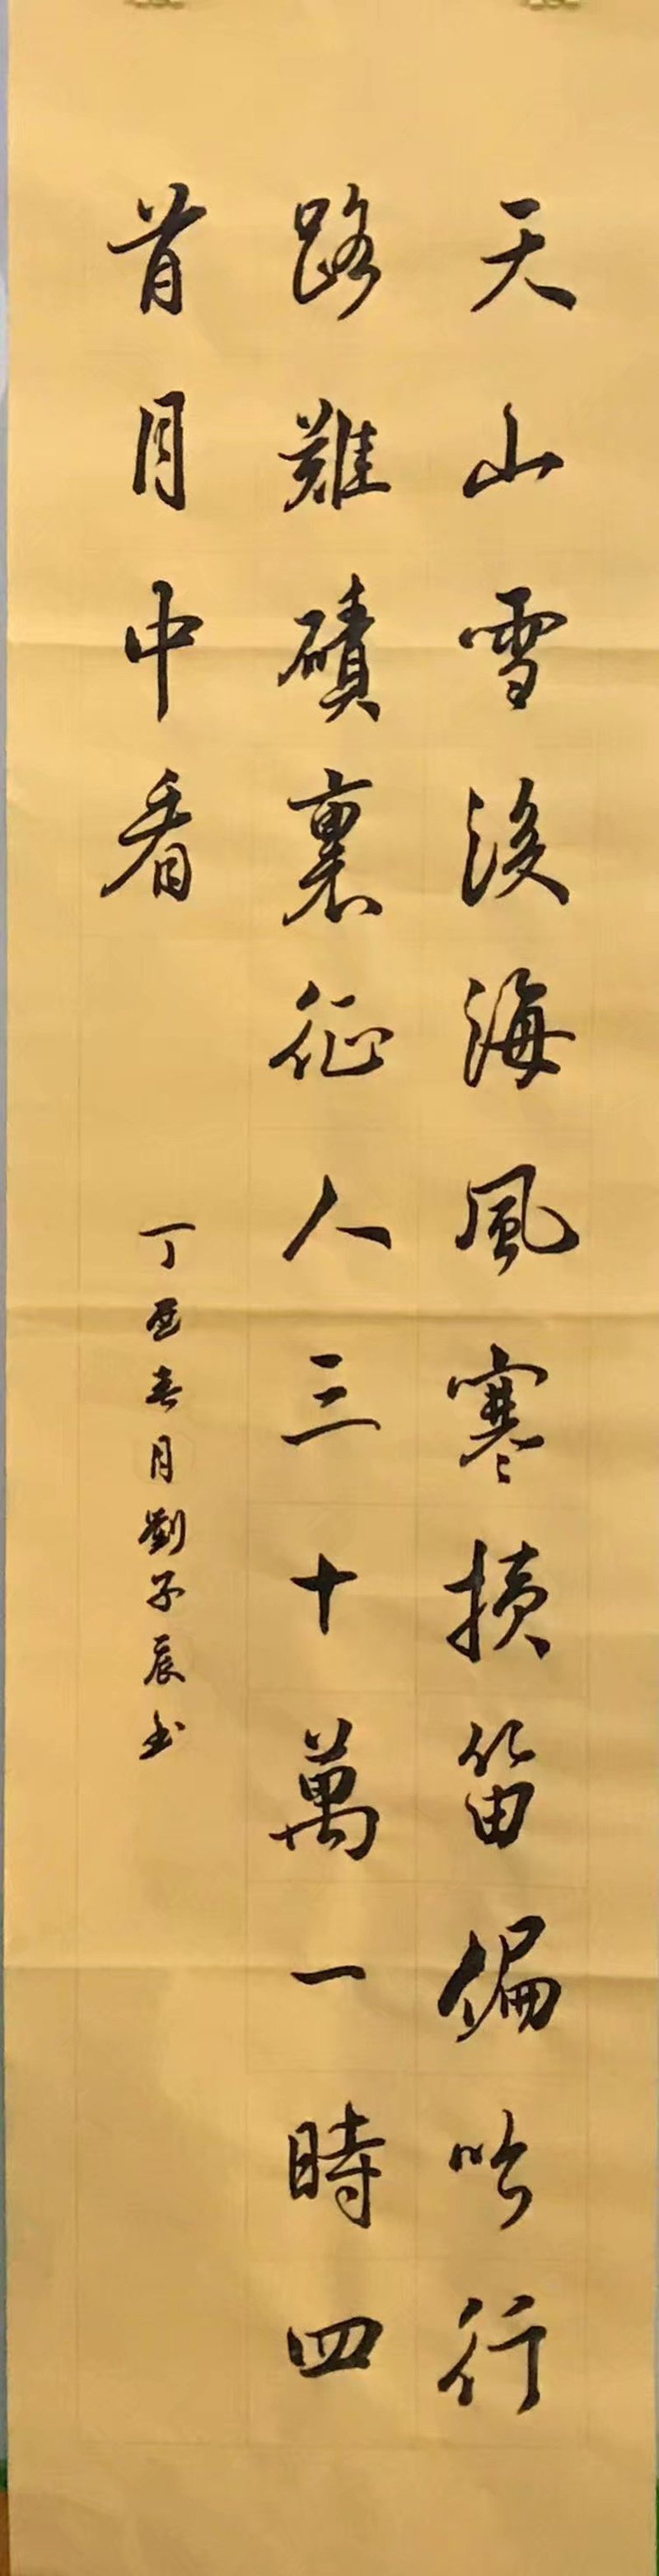 天山雪後海風寒横笛偏吹行
路難磧裏征人三十萬一時回
首月中看
丁酉春月劉子辰书